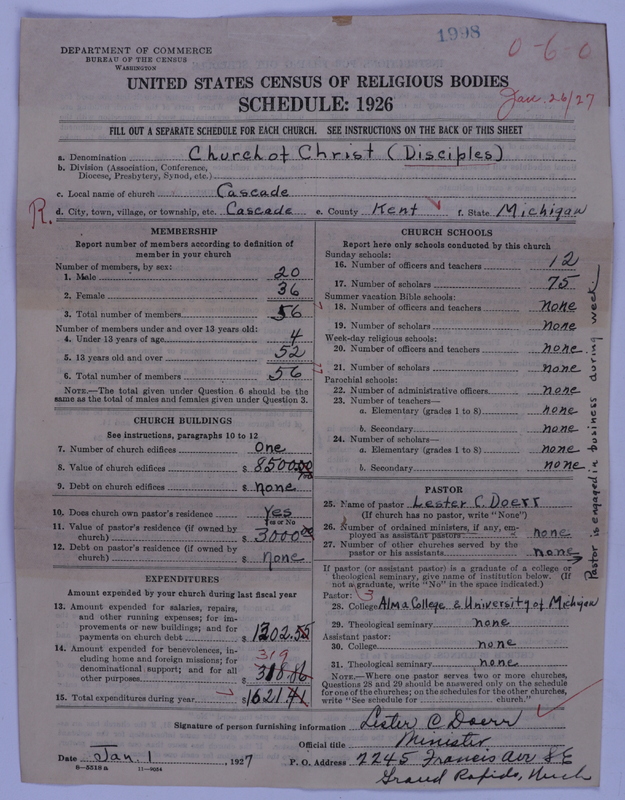 1998
0-6-0
Jan. 26/27
DEPARTMENT OF COMMERCE
BUREAU OF THE CENSUS
WASHINGTON
UNITED STATES CENSUS OF RELIGIOUS BODIES
SCHEDULE: 1926
FILL OUT A SEPARATE SCHEDULE FOR EACH CHURCH. SEE INSTRUCTIONS ON THE BACK OF THIS SHEET
a. Denomination Church of Christ (Disciples)
b. Division (Association, Conference,
Diocese, Presbytery, Synod, etc.)
c. Local name of church Cascade
R. d. City, town, village, or township, etc. Cascade e. County Kent f. State Michigan
MEMBERSHIP
Report number of members according to definition of
member in your church
Number of members, by sex:
1. Male 20
2. Female 36
3. Total number of members 56
Number of members under and over 13 years old:
4. Under 13 years of age 4
5. 13 years old and over 52
6. Total number of members 56
NOTE.—The total given under Question 6 should be
the same as the total of males and females given under Question 3.
CHURCH BUILDINGS
See instructions, paragraphs 10 to 12
7. Number of church edifices One
8. Value of church edifices $ 8500.00
9. Debt on church edifices $ none
10. Does church own pastor's residence Yes
Yes or No
11. Value of pastor's residence (if owned by
church) $ 3000.00
12. Debt on pastor's residence (if owned by
church) $ none
EXPENDITURES
Amount expended by your church during last fiscal year
13. Amount expended for salaries, repairs,
and other running expenses; for im-
provements or new buildings; and for
payments on church debt $ 1302.55
14. Amount expended for benevolences, in-
cluding home and foreign missions; for
denominational support; and for all
other purposes $ 318.86
319
15. Total expenditures during year $ 1621.41
CHURCH SCHOOLS
Report here only schools conducted by this church
Sunday schools:
16. Number of officers and teachers 12
17. Number of scholars 75
Summer vacation Bible schools:
18. Number of officers and teachers none
19. Number of scholars none
Week-day religious schools:
20. Number of officers and teachers none
21. Number of scholars none
Parochial schools:
22. Number of administrative officers none
23. Number of teachers—
a. Elementary (grades 1 to 8) none
b. Secondary none
24. Number of scholars—
a. Elementary (grades 1 to 8) none
b. Secondary none
PASTOR
25. Name of pastor Lester C. Doerr
(If church has no pastor, write "None")
26. Number of ordained ministers, if any, em-
ployed as assistant pastors none
27. Number of other churches served by the
pastor or his assistants none
If pastor (or assistant pastor) is a graduate of a college or
theological seminary, give name of institution below. (If
not a graduate, write "No" in the space indicated.)
Pastor: 3
28. College Alma College & University of Michigan
29. Theological seminary none
Assistant pastor:
30. College none
31. Theological seminary none
NOTE.—Where one pastor serves two or more churches,
Questions 28 and 29 should be answered only on the schedule
for one of the churches; on the schedules for the other churches,
write "See schedule for church."
Pastor is engaged in business during week
Signature of person furnishing information Lester C Doerr
Official title Minister
Date Jan. 1, 1927 P. O. Address 2245 Francis Ave SE
Grand Rapids, Mich
8—3318a 11—9054